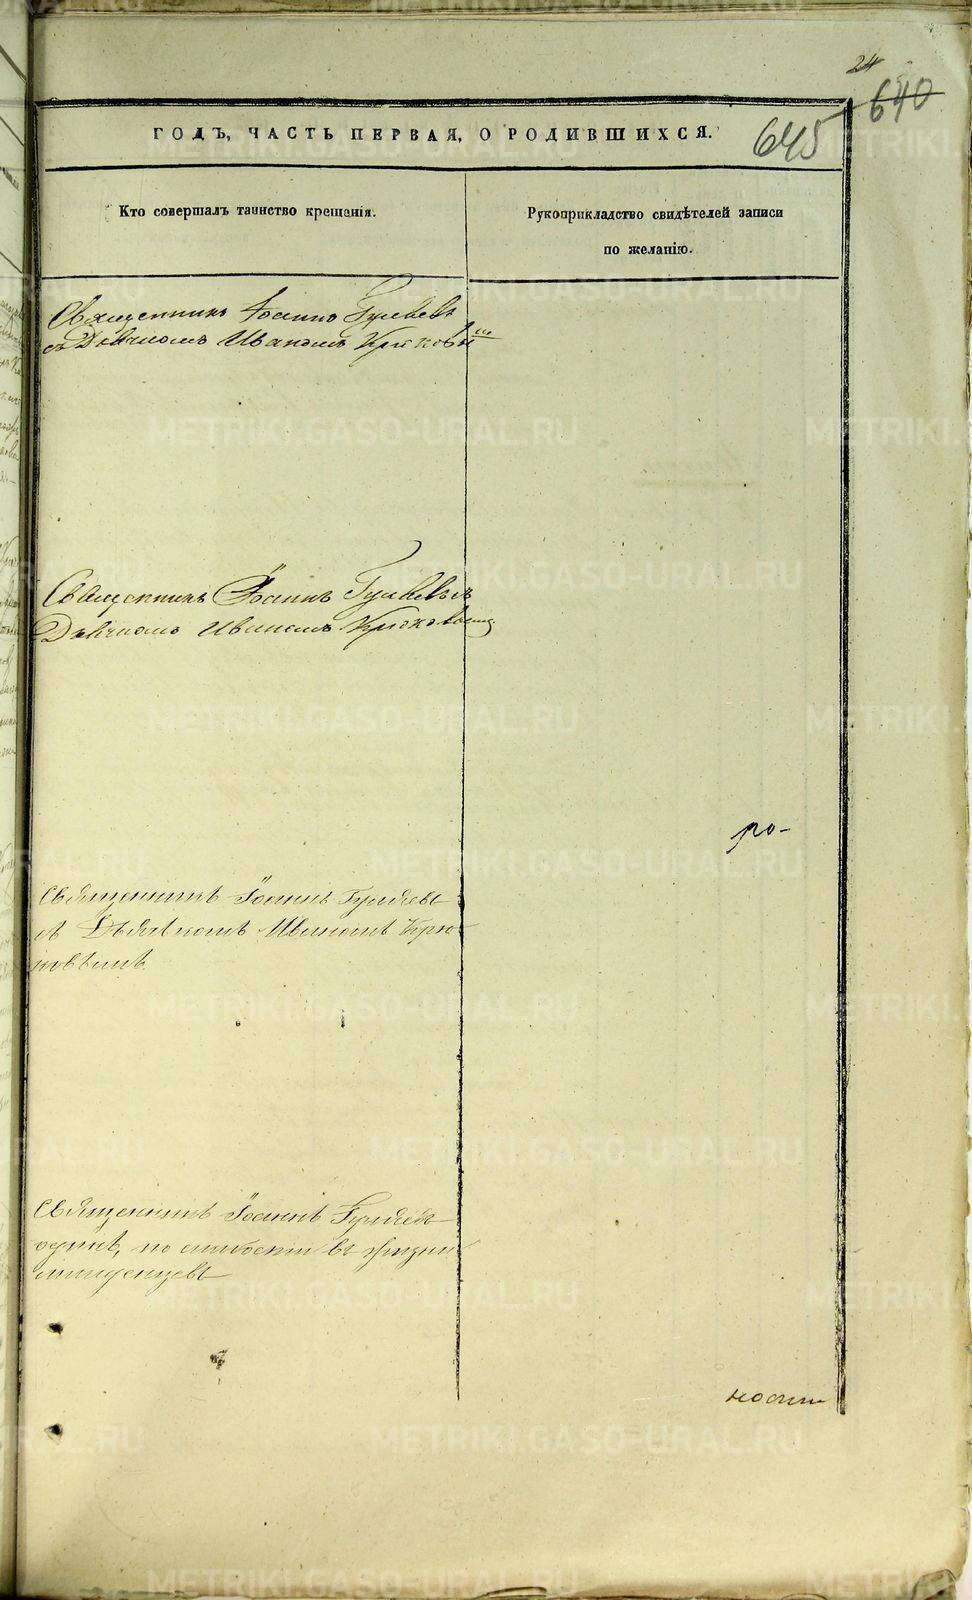 24
640
645
ГОДЪ, ЧАСТЬ ПЕРВАЯ, О РОДИВШИХСЯ.
Кто совершалъ таинство крещенія.
Рукоприкладство свидѣтелей записи
по желанію.
Священникъ Іоаннъ Гуляевъ
съ Дьячкомъ Иваномъ Крюковымъ
Священникъ Іоаннъ Гуляевъ съ
Дьячкомъ Иваномъ Крюковымъ
ро-
Священникъ Іоаннъ Гуляевъ
съ Дьячкомъ Иваномъ Крю-
ковымъ
Священникъ Іоаннъ Гуляевъ
одинъ, по слабости въ жизни
младенцевъ
METRIKI.GASO-URAL.RU